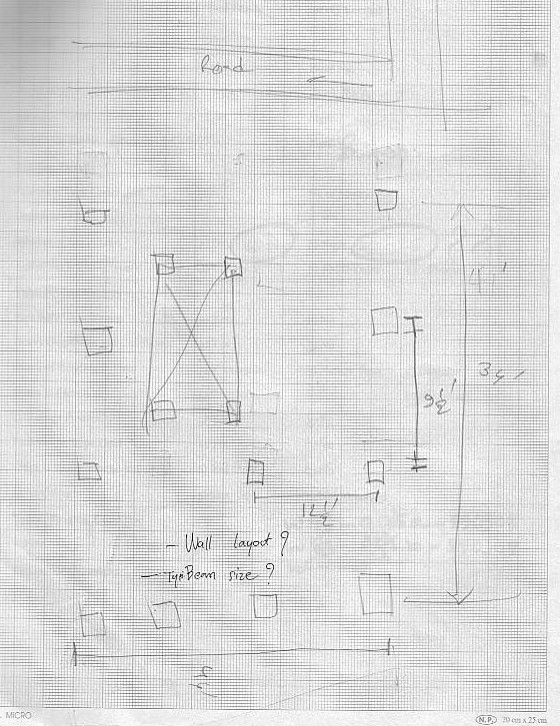 Road
9½'
12½'
- Wall layout ?
- Beam size ?
MICRO
N.P. 20 cm x 25 cm